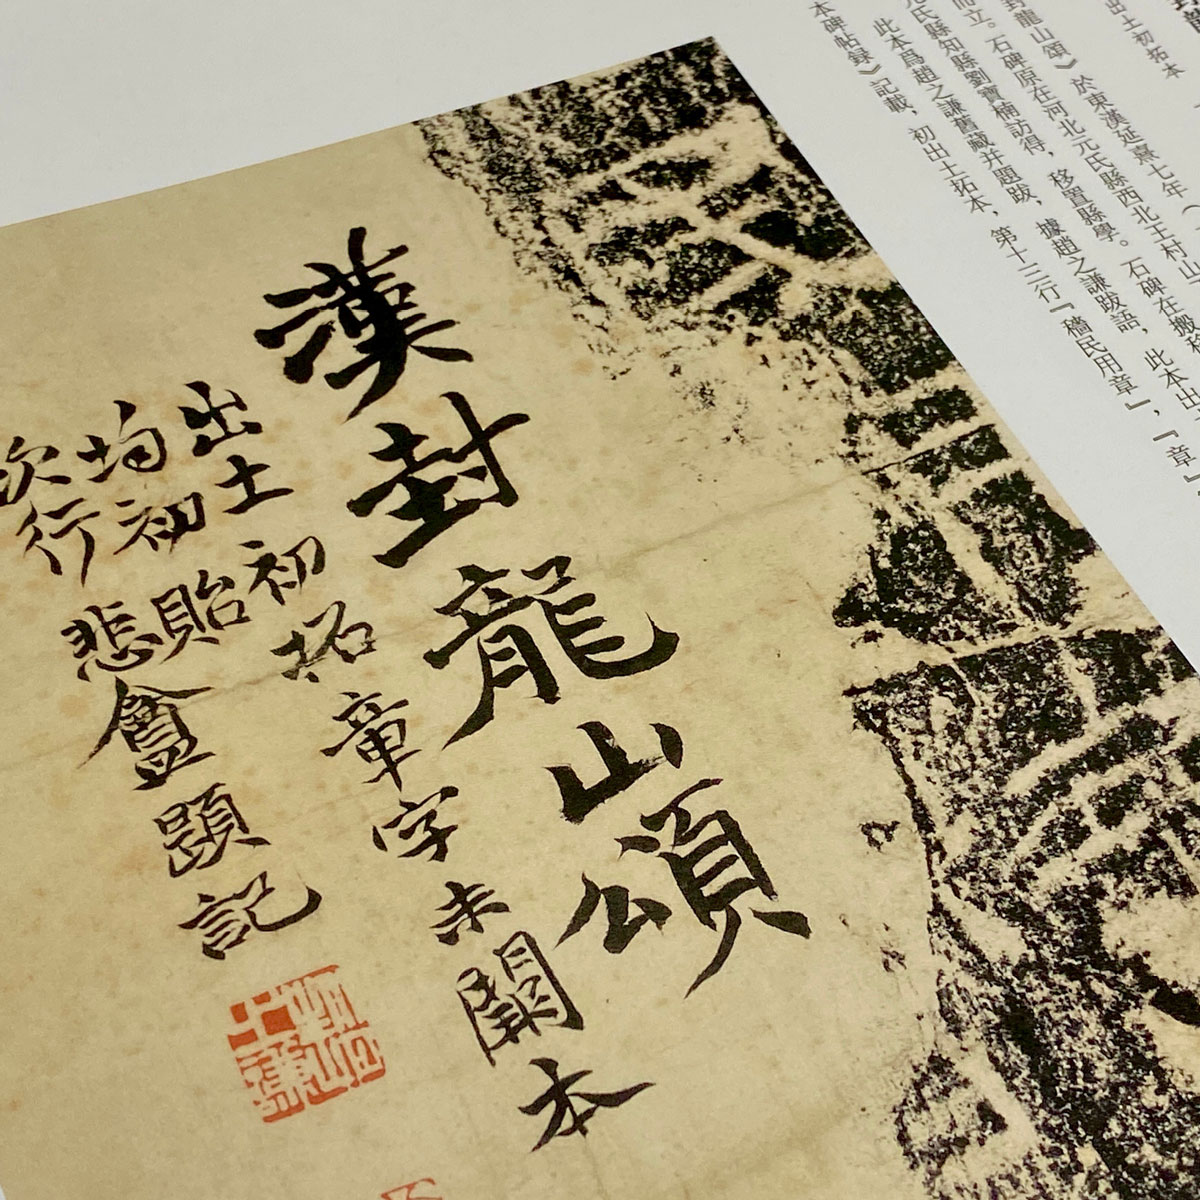 出土初拓本
封龍山頌》於東漢延熹七年（
而立。石碑原在河北元氏縣西北王村山
元氏縣知縣劉寶楠訪得，移置縣學。石碑在搬移
此本爲趙之謙舊藏并題跋，據趙之謙跋語，此本出
本碑帖録》記載，初出土拓本，第十三行『穡民用章』，『章』
漢封龍山頌
出土初拓章字未闕本
均初貽
次行悲盦題記